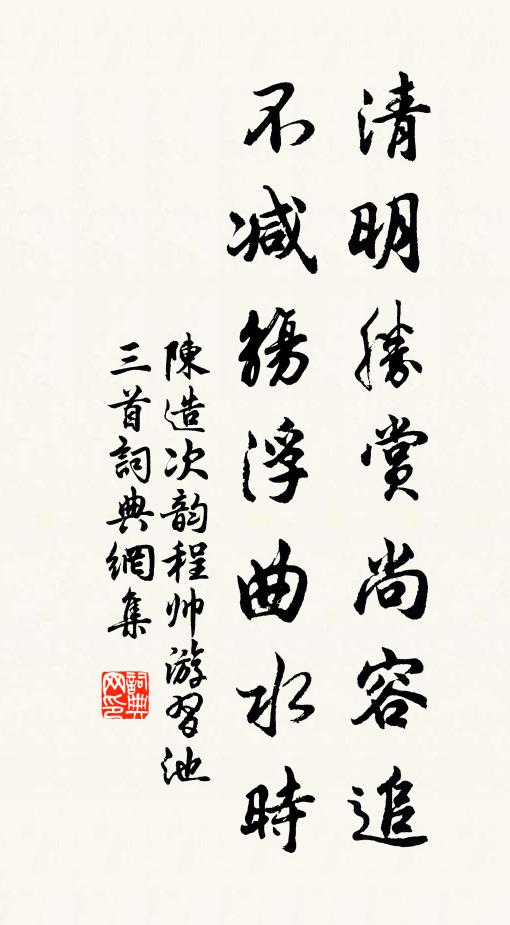 清明勝賞尚容追
不减觴浮曲水時
陳造次韵程帅游習池
三首詞典網集
詞典网印